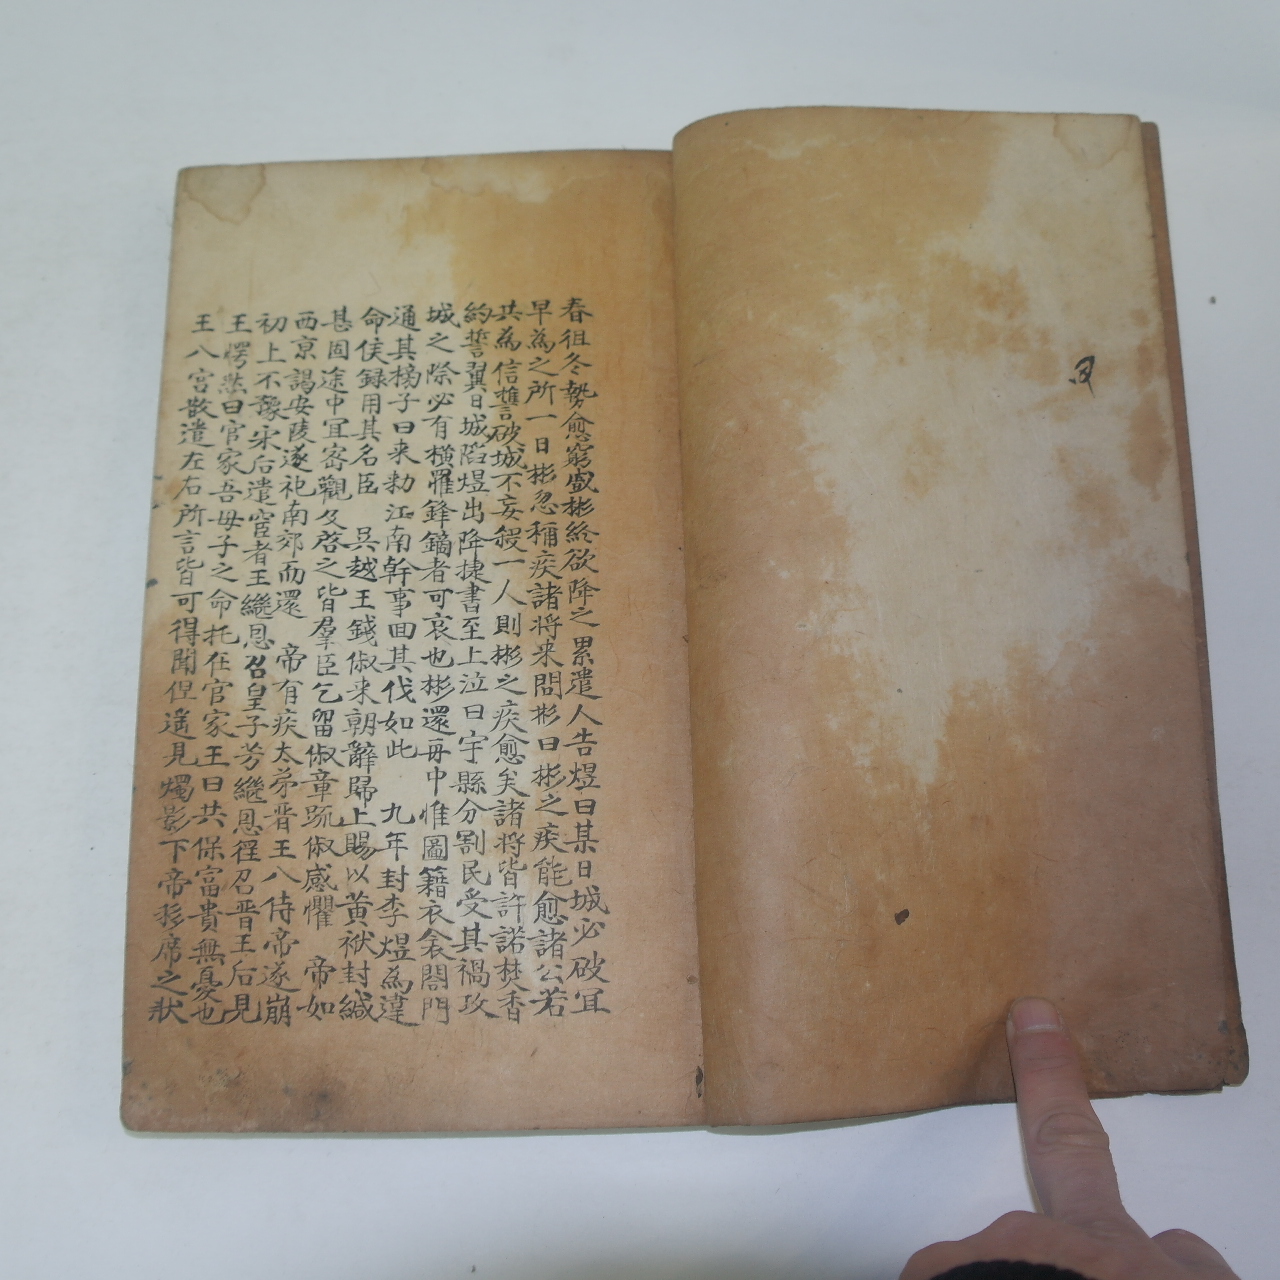 春徂冬勢愈窮蹙彬終欲降之累遣人告煜曰某日城必破冝
早為之所一日彬忽稱疾諸将来問彬曰彬之疾能愈諸公若
共為信誓破城不妄殺一人則彬之疾愈矣諸将皆許諾焚香
約誓翼日城陷煜出降捷書至上泣曰宇縣分割民受其禍攻
城之際必有橫罹鋒鏑者可哀也彬還舟中惟圖籍衣衾閤門
通其榜子曰来勑江南幹事囬其伐如此 九年封李煜為違
命侯録用其名臣 吳越王錢俶来朝辭歸上賜以黄袱封緘
甚固途中冝宻觀及啓之皆羣臣乞留俶章䟽俶感懼 帝如
西京謁安陵遂祀南郊而還 帝有疾太弟晋王入侍帝遂崩
初上不豫宋后遣宦者王繼恩召皇子芳繼恩徑召晋王后見
王愕然曰官家吾母子之命托在官家王曰共保富貴無憂也
王入宫散遣左右所言皆可得聞但遥見燭影下帝移席之狀